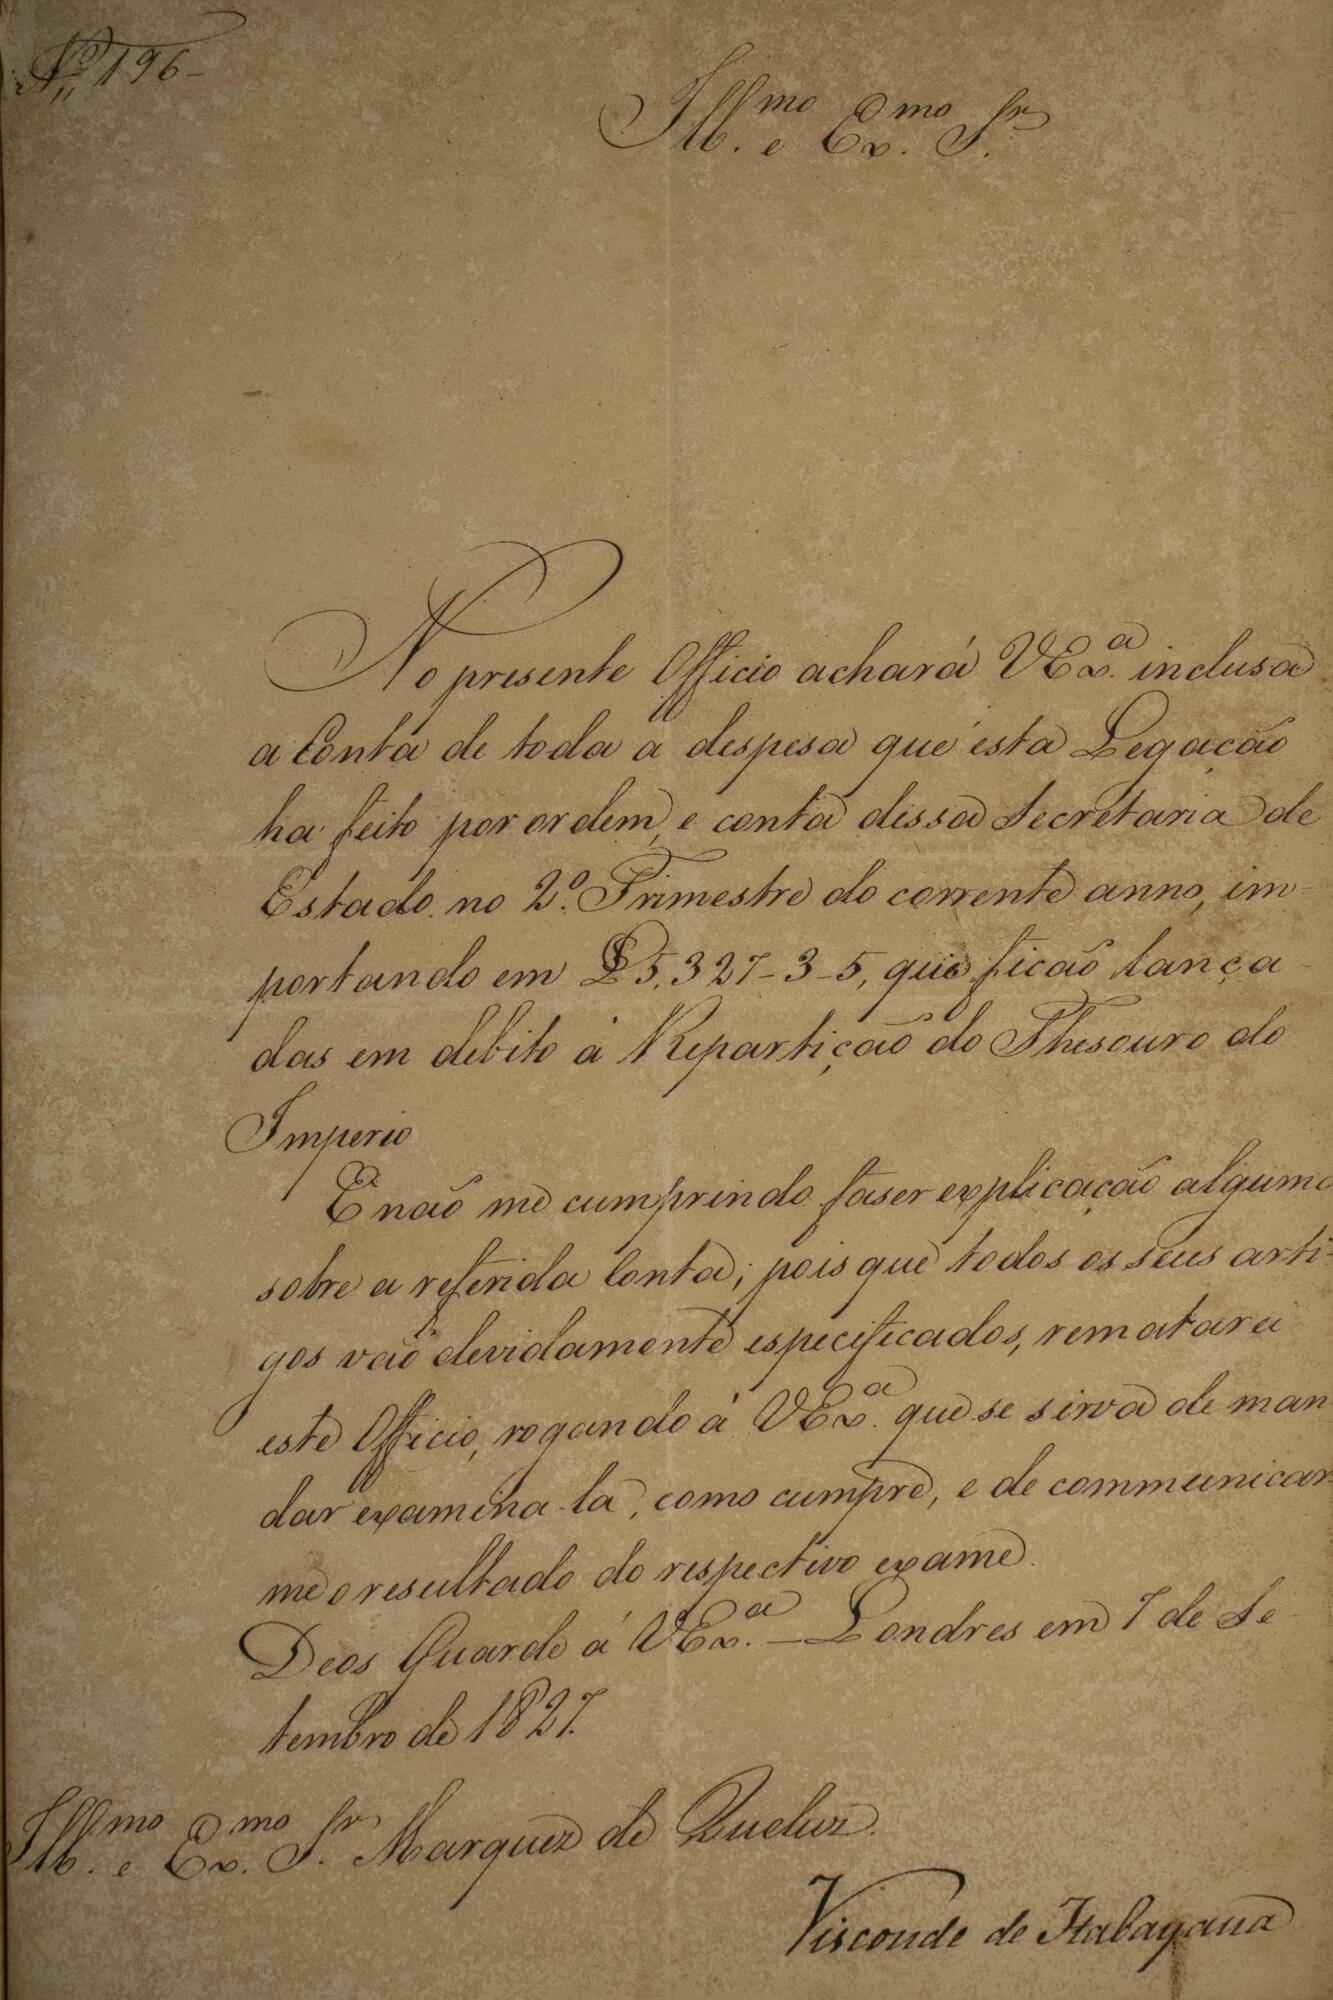 Nº 196-
Ill.mo e Ex.mo Sr.
No presente Officio achará VEx.a inclusa
a Conta de toda a despesa que esta Legação
ha feito por ordem, e conta dessa Secretaria de
Estado no 2º. Trimestre do corrente anno, im-
portando em £5,327-3-5, que ficão lança-
das em debito á Repartição do Thesouro do
Imperio
E não me cumprindo faser explicação alguma
sobre a referida Conta; pois que todos os seus arti-
gos vão devidamente especificados, rematarei
este Officio, rogando á VEx.a que se sirva de man
dar examina-la, como cumpre, e de communicar-
me o resultado do respectivo exame.
Deos Guarde á VEx.a - Londres em 7 de Se-
tembro de 1827.
Ill.mo e Ex.mo Sr. Marquez de Queluz.
Visconde de Itabayana